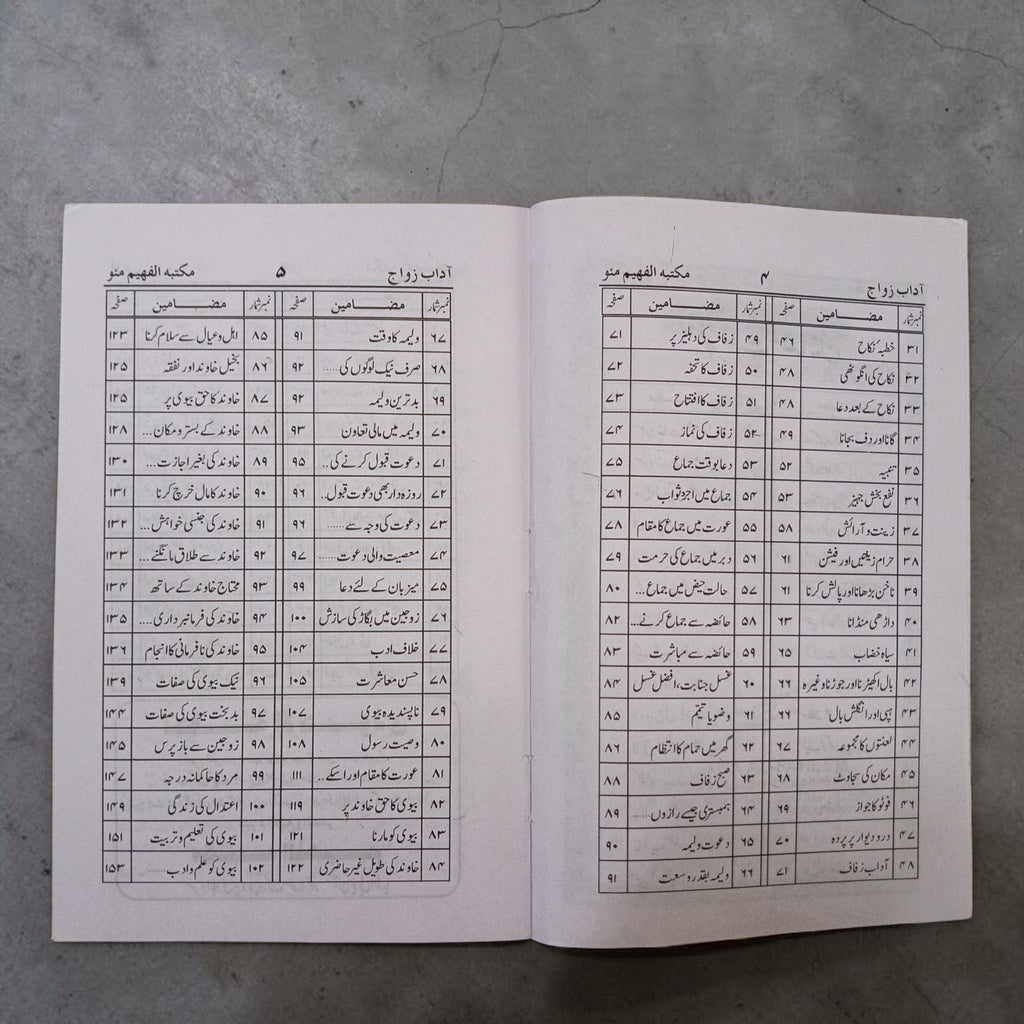 آداب زواج ۴ مکتبہ الفہیم مئو
نمبرشمار مضامین صفحہ
۳۱ خطبۂ نکاح ۴۶
۳۲ نکاح کی انگوٹھی ۴۸
۳۳ نکاح کے بعد دعا ۴۸
۳۴ گانا اور دف بجانا ۴۹
۳۵ تنبیہ ۵۲
۳۶ نفع بخش جہیز ۵۳
۳۷ زینت و آرائش ۵۸
۳۸ حرام زینتیں اور فیشن ۶۱
۳۹ ناخن بڑھانا اور پالش کرنا ۶۱
۴۰ داڑھی منڈانا ۶۳
۴۱ سیاہ خضاب ۶۵
۴۲ بال اکھیڑنا اور جوڑنا وغیرہ ۶۶
۴۳ ہپی اور انگلش بال ۶۶
۴۴ لعنتوں کا مجموعہ ۶۷
۴۵ مکان کی سجاوٹ ۶۸
۴۶ فوٹو کا جواز ۶۹
۴۷ در و دیوار پر پردہ ۷۰
۴۸ آداب زفاف ۷۱
نمبرشمار مضامین صفحہ
۴۹ زفاف کی دہلیز پر ۷۱
۵۰ زفاف کا تحفہ ۷۲
۵۱ زفاف کا افتتاح ۷۳
۵۲ زفاف کی نماز ۷۴
۵۳ دعا بوقت جماع ۷۵
۵۴ جماع میں اجر و ثواب ۷۶
۵۵ عورت میں جماع کا مقام ۷۸
۵۶ دبر میں جماع کی حرمت ۷۹
۵۷ حالت حیض میں جماع... ۸۰
۵۸ حائضہ سے جماع کرنے... ۸۲
۵۹ حائضہ سے مباشرت ۸۳
۶۰ غسل جنابت، افضل غسل ۸۴
۶۱ وضو یا تیمّم ۸۵
۶۲ گھر میں حمام کا انتظام ۸۶
۶۳ صبح زفاف ۸۸
۶۴ ہمبستری جیسے رازوں...... ۸۹
۶۵ دعوت ولیمہ ۹۰
۶۶ ولیمہ بقدر وسعت ۹۱
آداب زواج ۵ مکتبہ الفہیم مئو
نمبرشمار مضامین صفحہ
۶۷ ولیمہ کا وقت ۹۱
۶۸ صرف نیک لوگوں کی...... ۹۲
۶۹ بدترین ولیمہ ۹۲
۷۰ ولیمہ میں مالی تعاون ۹۳
۷۱ دعوت قبول کرنے کی... ۹۵
۷۲ روزہ دار بھی دعوت قبول.. ۹۶
۷۳ دعوت کی وجہ سے...... ۹۶
۷۴ معصیت والی دعوت...... ۹۷
۷۵ میزبان کے لئے دعا ۹۹
۷۶ زوجین میں بگاڑ کی سازش ۱۰۰
۷۷ خلاف ادب ۱۰۴
۷۸ حسن معاشرت ۱۰۵
۷۹ ناپسندیدہ بیوی ۱۰۷
۸۰ وصیت رسول ۱۰۸
۸۱ عورت کا مقام اور اسکے... ۱۱۱
۸۲ بیوی کا حق خاوند پر ۱۱۹
۸۳ بیوی کو مارنا ۱۲۱
۸۴ خاوند کی طویل غیر حاضری ۱۲۲
نمبرشمار مضامین صفحہ
۸۵ اہل و عیال سے سلام کرنا ۱۲۳
۸۶ بخیل خاوند اور نفقہ ۱۲۵
۸۷ خاوند کا حق بیوی پر ۱۲۵
۸۸ خاوند کے بستر و مکان... ۱۲۸
۸۹ خاوند کی بغیر اجازت... ۱۳۰
۹۰ خاوند کا مال خرچ کرنا ۱۳۱
۹۱ خاوند کی جنسی خواہش... ۱۳۲
۹۲ خاوند سے طلاق مانگنے... ۱۳۳
۹۳ محتاج خاوند کے ساتھ ۱۳۴
۹۴ خاوند کی فرمانبرداری.... ۱۳۵
۹۵ خاوند کی نافرمانی کا انجام ۱۳۶
۹۶ نیک بیوی کی صفات ۱۳۹
۹۷ بدبخت بیوی کی صفات ۱۴۴
۹۸ زوجین سے باز پرس ۱۴۵
۹۹ مرد کا حاکمانہ درجہ ۱۴۷
۱۰۰ اعتدال کی زندگی ۱۴۹
۱۰۱ بیوی کی تعلیم و تربیت ۱۵۱
۱۰۲ بیوی کو علم و ادب...... ۱۵۳